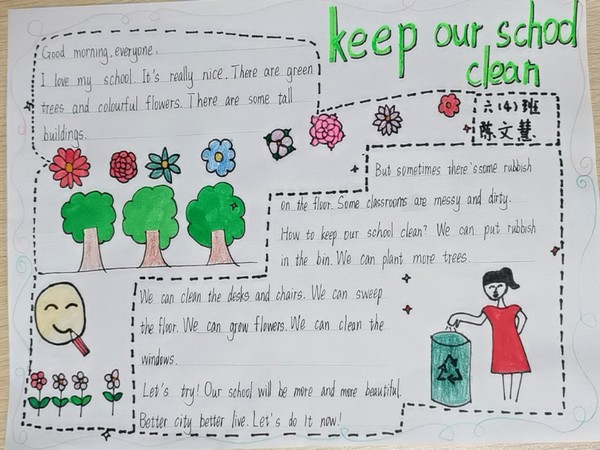 keep our school
clean
六(4)班
陈文慧
Good morning, everyone.
I love my school. It's really nice. There are green
trees and colourful flowers. There are some tall
buildings.
But sometimes there's some rubbish
on the floor. Some classrooms are messy and dirty.
How to keep our school clean? We can put rubbish
in the bin. We can plant more trees.
We can clean the desks and chairs. We can sweep
the floor. We can grow flowers. We can clean the
windows.
Let's try! Our school will be more and more beautiful.
Better city better live. Let's do it now!